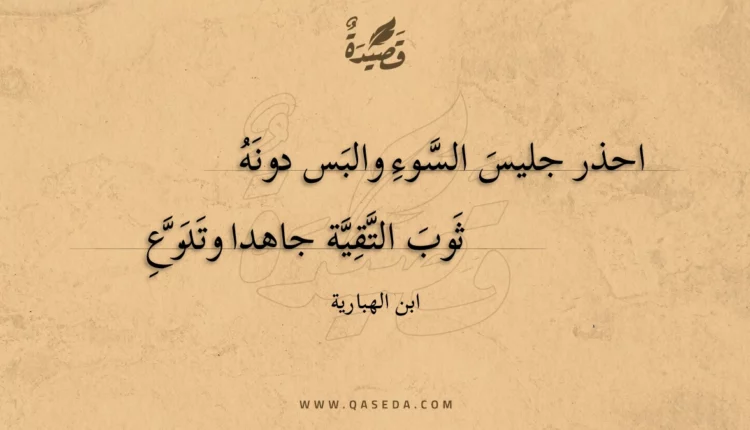 قَصِيْدَةٌ
احذر جليسَ السَّوءِ والبَس دونَهُ
ثَوبَ التَّقِيَّة جاهدا وتَدَوَّعِ
ابن الهبارية
WWW.QASEDA.COM